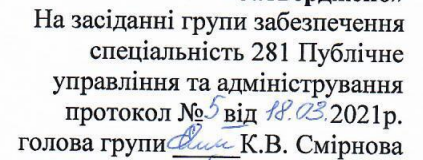 На засіданні групи забезпечення
спеціальність 281 Публічне
управління та адміністрування
протокол №5 від 18.03.2021р.
голова групи К.В. Смірнова